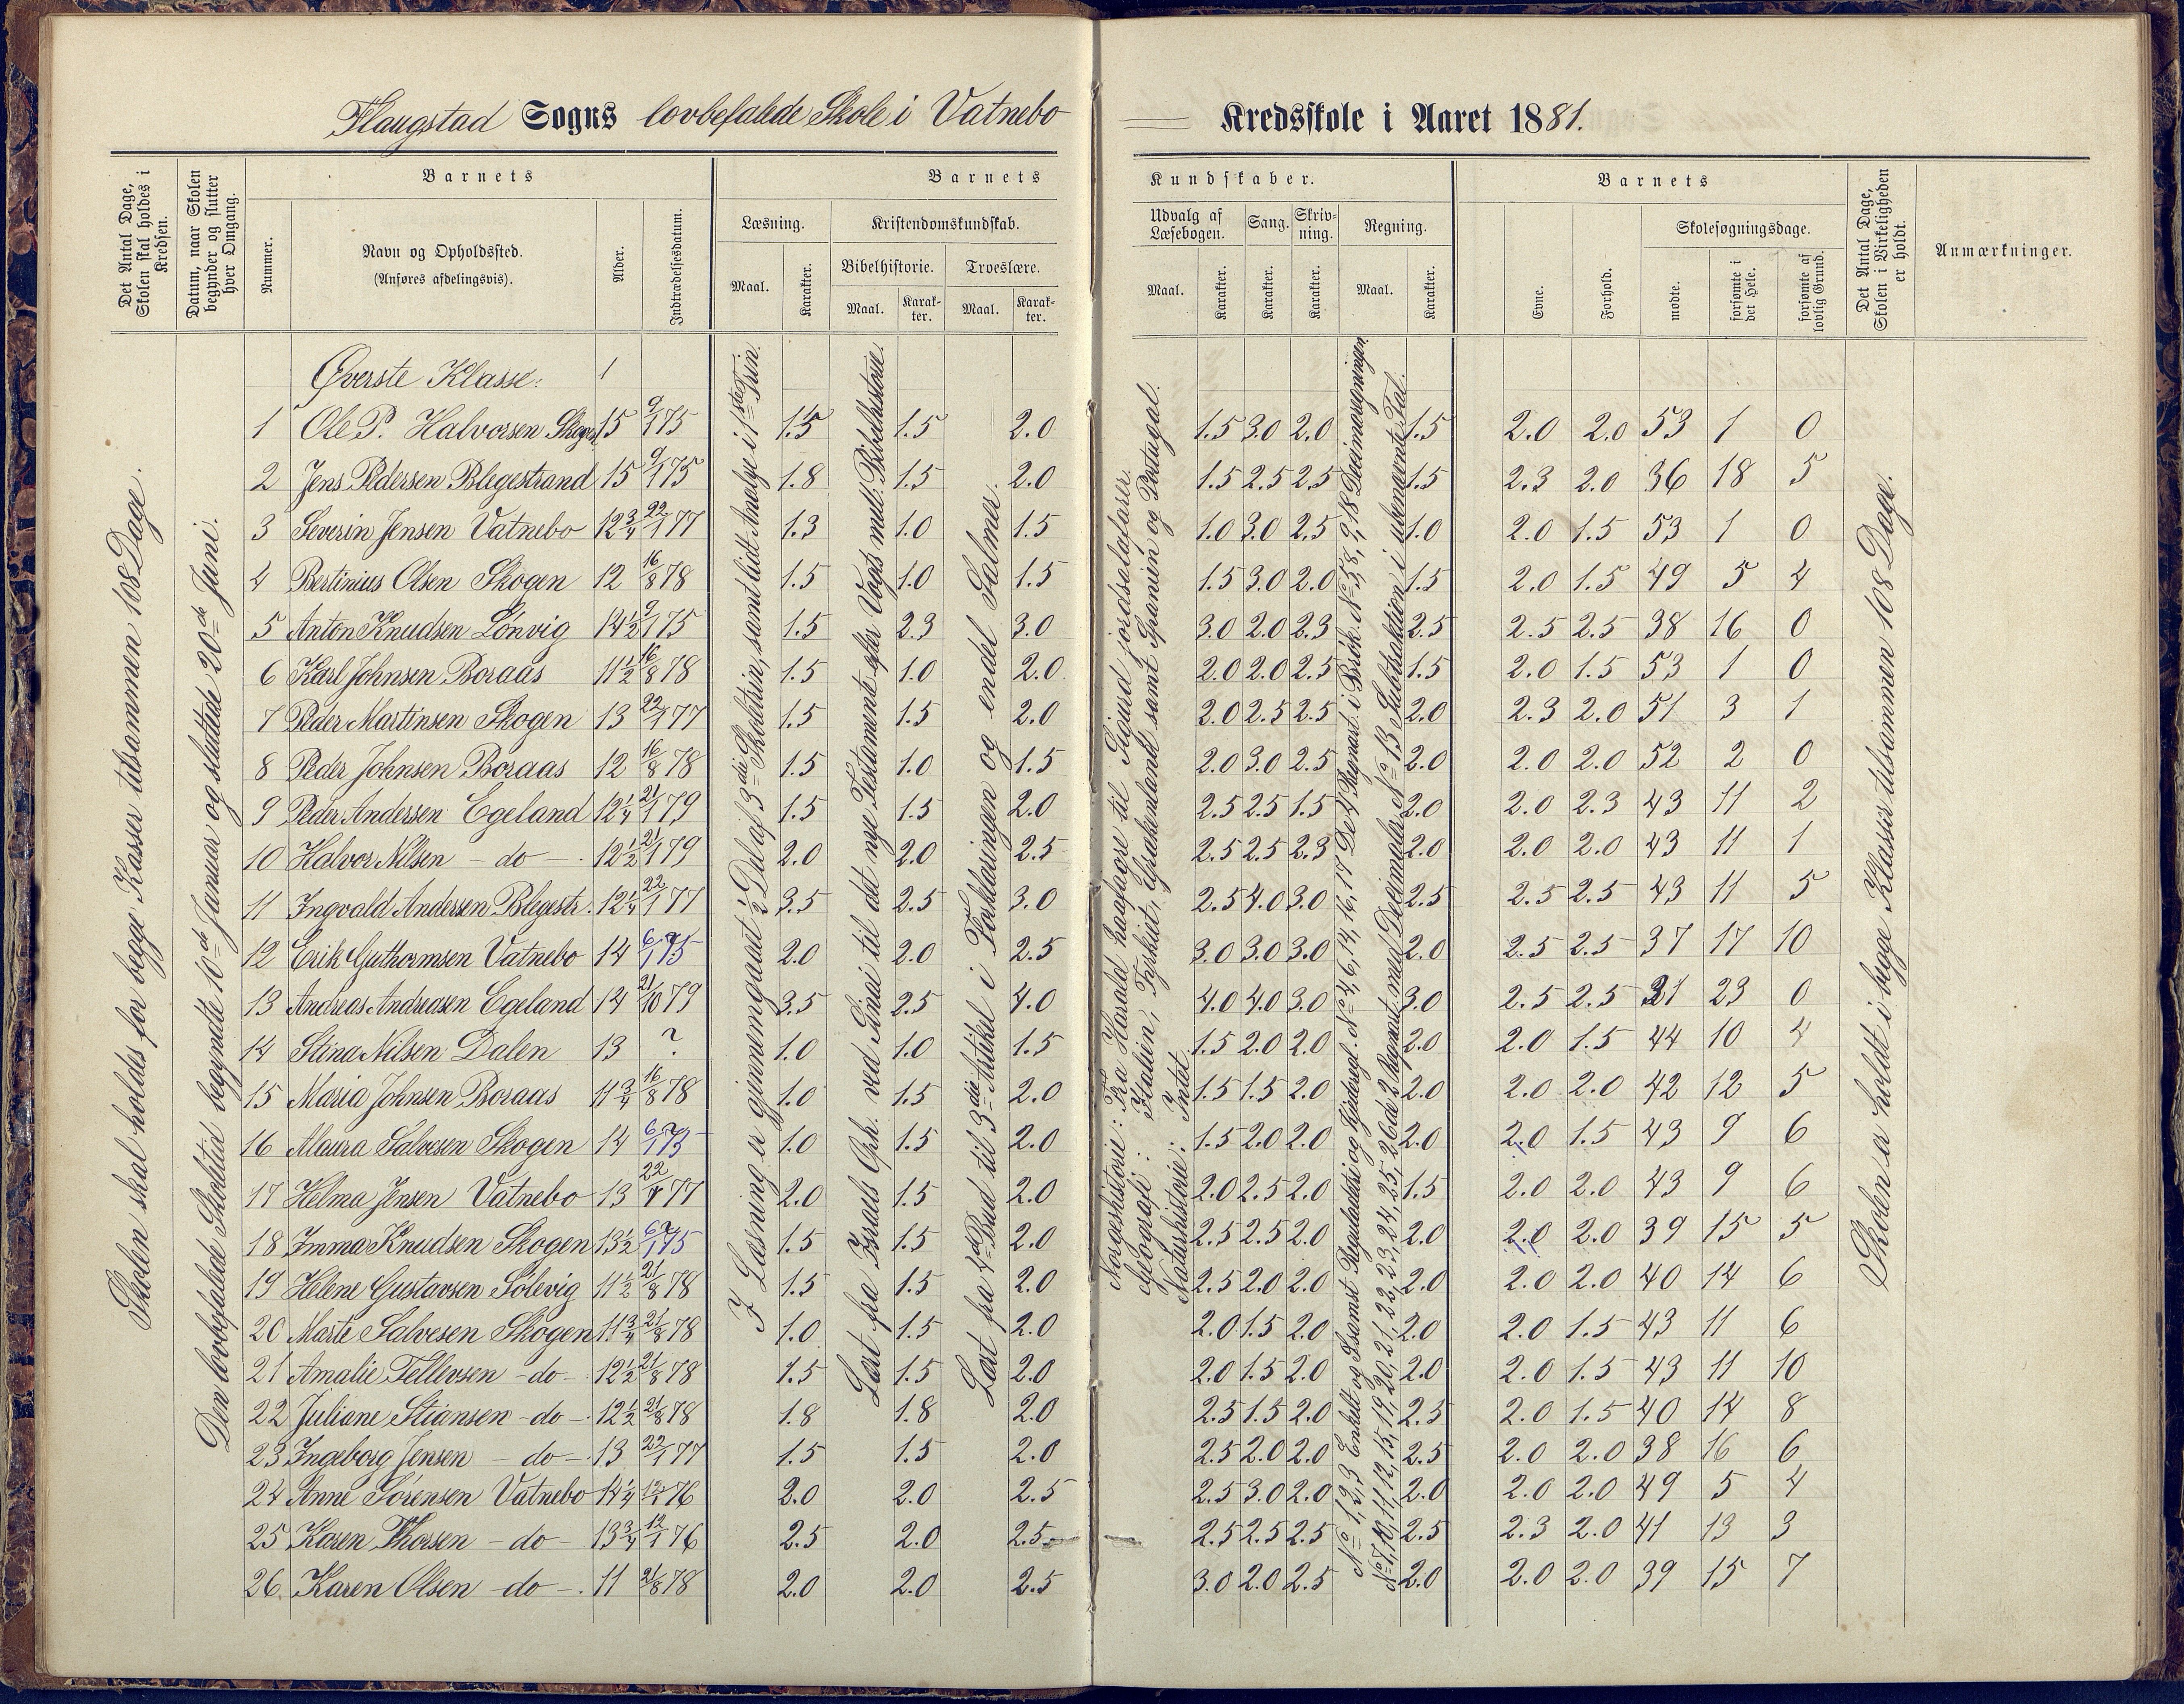 Flaugstad Sogns lovbefalede Skole i Vatnebo Kredsskole i Aaret 1881.
Det Antal Dage, Skolen skal holdes i Kredsen.
Datum, naar Skolen begynder og slutter hver Omgang.
Barnets
Nummer.
Navn og Opholdssted.
(Anføres afdelingsvis).
Alder.
Indtrædelsesdatum.
Barnets Kundskaber.
Læsning.
Maal.
Karakter.
Kristendomskundskab.
Bibelhistorie.
Maal.
Karakter.
Troeslære.
Maal.
Karakter.
Udvalg af Læsebogen.
Maal.
Karakter.
Sang.
Karakter.
Skrivning.
Karakter.
Regning.
Maal.
Karakter.
Barnets
Evne.
Forhold.
Skolesøgningsdage.
mødte.
forsømte i det Hele.
forsømte af lovlig Grund.
Det Antal Dage, Skolen i Virkeligheden er holdt.
Anmærkninger.
Skolen skal holdes for begge Klasser tilsammen 108 Dage.
Den lovbefalede Skoletid begyndte 10de Januar og sluttede 20de Juni.
I Læsning er gjennemgaaet ½ Del af 3die Skoletrin, samt lidt Analyse i 1ste Trin.
Lært fra Israels Ørk. ved Sinai til det nye Testamente efter Vogts mell. Bibelhistorie.
Lært fra 4de Bud til 3die Artikel i Forklaringen og endel Salmer.
Norgeshistorie: Fra Harald haarfagre til Sigurd jordsalafarer.
Geografi: Italien, Tyrkiet, Grækenland samt Spanien og Portugal.
Naturhistorie: Intet.
No 1, 2, 3 Enkelt og Isamst Reguladetri og Kjæderegl. No 4, 6, 14, 16, 17 De 4 Regnart. i Brøk. No 5, 8, 9, 18 Decimaregningen
No 7, 10, 11, 12, 15, 19, 20, 21, 22, 23, 24, 25, 26 de 2 Regnart. med Decimaler No 13 Subtraktion i ubenævnte Tal.
Skolen er holdt i begge Klasser tilsammen 108 Dage.
Øverste Klasse: 1
1 Ole P. Halvorsen Skogen 15 9/1 75 1.5 1.5 2.0 1.5 3.0 2.0 1.5 2.0 2.0 53 1 0
2 Jens Pedersen Blegestrand 15 9/1 75 1.8 1.5 2.0 1.5 2.5 2.5 1.5 2.3 2.0 36 18 5
3 Severin Jensen Vatnebo 12¾ 22/1 77 1.3 1.0 1.5 1.0 3.0 2.5 1.0 2.0 1.5 53 1 0
4 Bertinius Olsen Skogen 12 16/8 78 1.5 1.0 1.5 1.5 3.0 2.0 1.5 2.0 1.5 49 5 4
5 Anton Knudsen Lønvig 14½ 9/1 75 1.5 2.3 3.0 3.0 2.0 2.3 2.5 2.5 2.5 38 16 0
6 Karl Johnsen Boraas 11½ 16/8 78 1.5 1.0 2.0 2.0 2.0 2.5 1.5 2.0 1.5 53 1 0
7 Peder Martinsen Skogen 13 22/1 77 1.5 1.5 2.0 2.0 2.5 2.5 2.0 2.3 2.0 51 3 1
8 Peder Johnsen Boraas 12 16/8 78 1.5 1.0 1.5 2.0 3.0 2.5 2.0 2.0 2.0 52 2 0
9 Peder Andersen Egeland 12¼ 21/1 79 1.5 1.5 2.0 2.5 2.5 1.5 2.0 2.0 2.3 43 11 2
10 Halvor Nilsen - do - 12½ 21/1 79 2.0 2.0 2.5 2.5 2.5 2.3 2.0 2.0 2.0 43 11 1
11 Ingvald Andersen Blegestr. 12¼ 22/1 77 3.5 2.5 3.0 2.5 4.0 3.0 2.5 2.5 2.5 43 11 5
12 Erik Guthormsen Vatnebo 14 6/1 75 2.0 2.0 2.5 3.0 3.0 3.0 2.0 2.5 2.5 37 17 10
13 Andreas Andreasen Egeland 14 21/10 79 3.5 2.5 4.0 4.0 4.0 3.0 3.0 2.5 2.5 31 23 0
14 Stina Nilsen Dalen 13 ? 1.0 1.0 1.5 1.5 2.0 2.0 2.0 2.0 1.5 44 10 4
15 Maria Johnsen Boraas 11¾ 16/8 78 1.0 1.5 2.0 1.5 1.5 2.0 2.0 2.0 2.0 42 12 5
16 Maura Salvesen Skogen 14 6/1 75 1.0 1.5 2.0 1.5 2.0 2.0 2.0 2.0 1.5 43 9 6
17 Helma Jensen Vatnebo 13 22/1 77 2.0 1.5 2.0 2.0 2.5 2.0 1.5 2.0 2.0 43 9 6
18 Imma Knudsen Skogen 13½ 6/1 75 1.5 1.5 2.0 2.5 2.5 2.0 2.0 2.0 2.0 39 15 5
19 Helene Gustavsen Solevig 11½ 21/8 78 1.5 1.5 2.0 2.5 2.0 2.0 2.0 2.0 2.0 40 14 6
20 Marte Salvesen Skogen 11¾ 21/8 78 1.0 1.5 2.0 2.0 1.5 2.0 2.0 2.0 1.5 43 11 6
21 Amalie Tellevsen - do - 12½ 21/8 78 1.5 1.5 2.0 2.0 1.5 2.0 2.0 2.0 1.5 43 11 10
22 Juliane Stiansen - do - 12½ 21/8 78 1.8 1.8 2.0 2.5 1.5 2.0 2.5 2.0 1.5 40 14 8
23 Ingeborg Jensen - do - 13 22/1 77 1.5 1.5 2.0 2.5 2.0 2.0 2.5 2.0 2.0 38 16 6
24 Anne Sørensen Vatnebo 14¼ 12/1 76 2.0 2.0 2.5 2.5 3.0 2.0 2.0 2.0 2.0 49 5 4
25 Karen Thorsen - do - 13¾ 12/1 76 2.5 2.0 2.5 2.5 2.5 2.5 2.5 2.3 2.0 41 13 3
26 Karen Olsen - do - 11 21/8 78 2.0 2.0 2.5 3.0 2.0 2.5 2.0 2.0 2.0 39 15 7